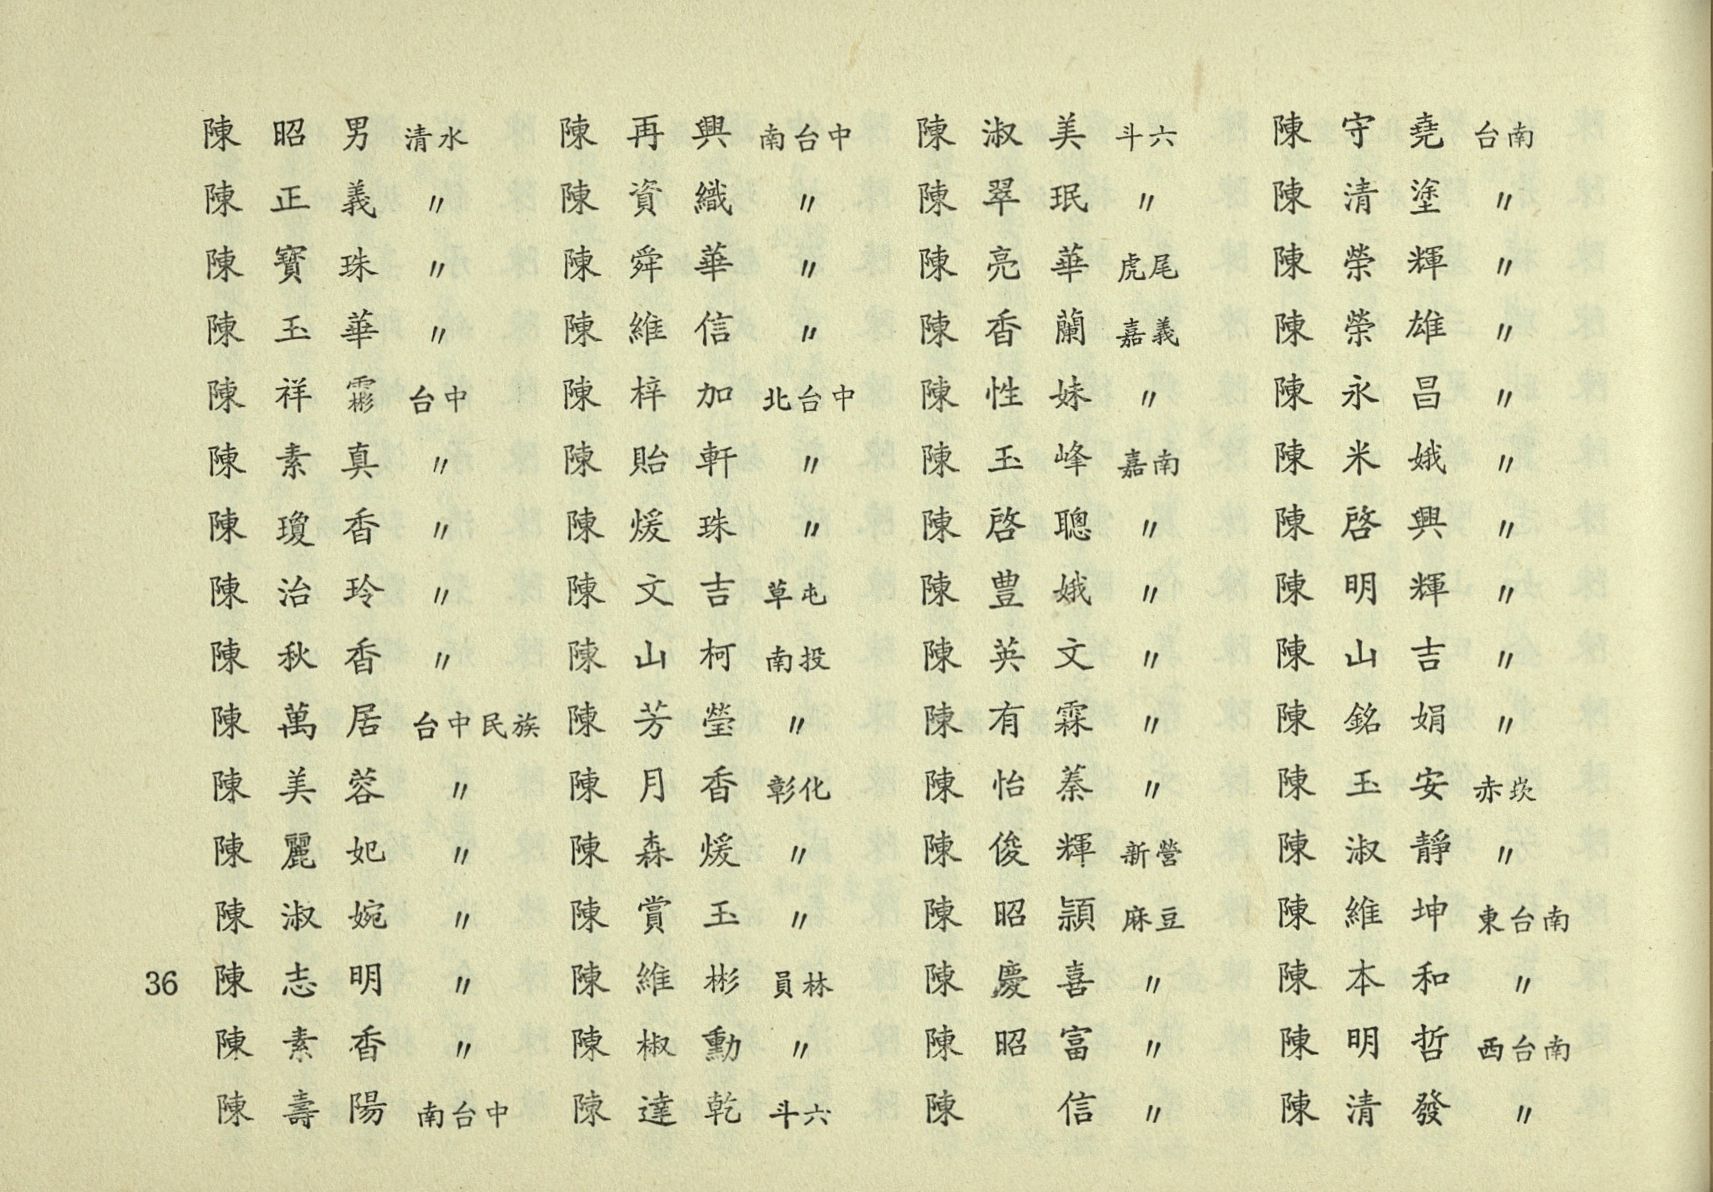 陳昭男 清水
陳正義 〃
陳寶珠 〃
陳玉華 〃
陳祥霦 台中
陳素真 〃
陳瓊香 〃
陳治玲 〃
陳秋香 〃
陳萬居 台中民族
陳美蓉 〃
陳麗妃 〃
陳淑婉 〃
陳志明 〃
陳素香 〃
陳壽陽 南台中
陳再興 南台中
陳資織 〃
陳舜華 〃
陳維信 〃
陳梓加 北台中
陳貽軒 〃
陳煖珠 〃
陳文吉 草屯
陳山柯 南投
陳芳瑩 〃
陳月香 彰化
陳森煖 〃
陳賞玉 〃
陳維彬 員林
陳椒勳 〃
陳達乾 斗六
陳淑美 斗六
陳翠珉 〃
陳亮華 虎尾
陳香蘭 嘉義
陳性妹 〃
陳玉峰 嘉南
陳啓聰 〃
陳豊娥 〃
陳英文 〃
陳有霖 〃
陳怡蓁 〃
陳俊輝 新營
陳昭頴 麻豆
陳慶喜 〃
陳昭富 〃
陳信 〃
陳守堯 台南
陳清塗 〃
陳榮輝 〃
陳榮雄 〃
陳永昌 〃
陳米娥 〃
陳啓興 〃
陳明輝 〃
陳山吉 〃
陳銘娟 〃
陳玉安 赤崁
陳淑靜 〃
陳維坤 東台南
陳本和 〃
陳明哲 西台南
陳清發 〃
36